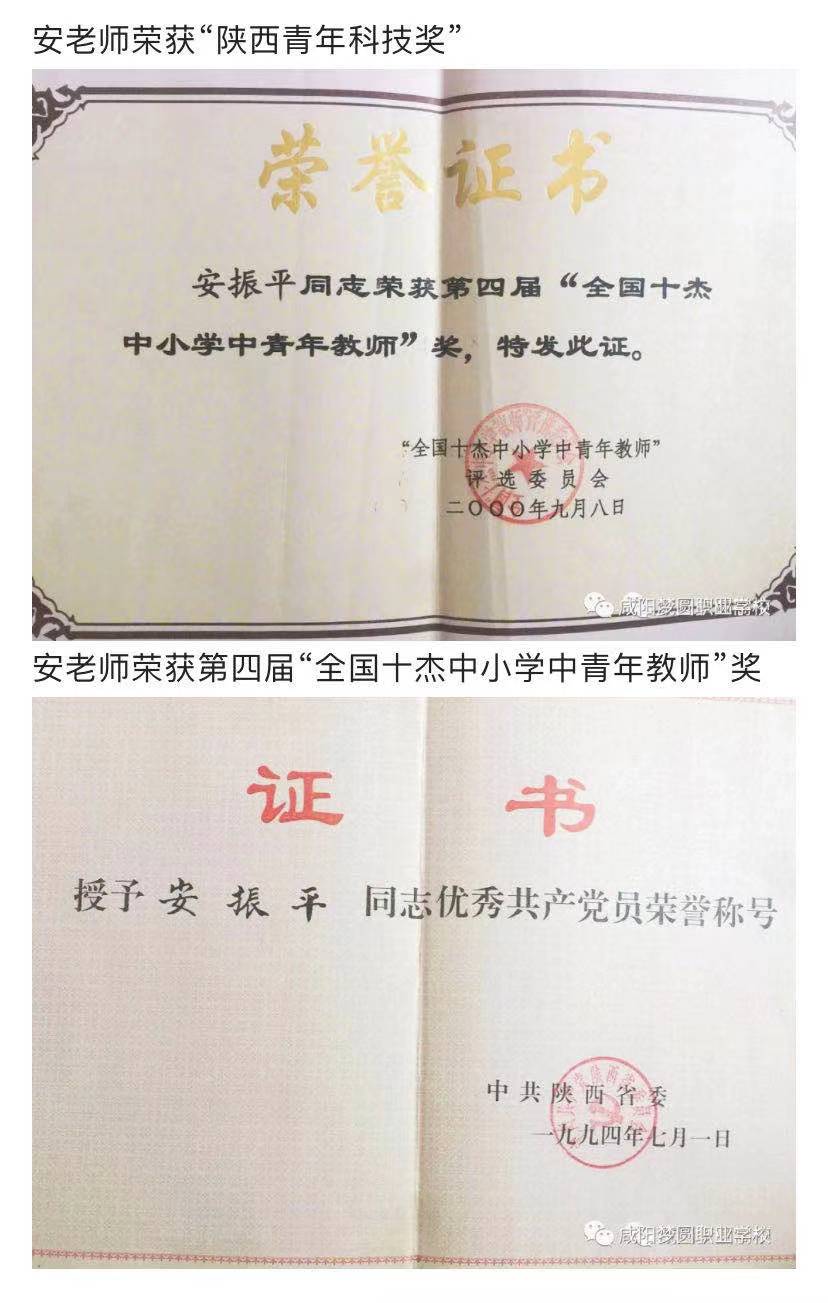 安老师荣获“陕西青年科技奖”
荣誉证书
安振平同志荣获第四届“全国十杰
中小学中青年教师”奖，特发此证。
“全国十杰中小学中青年教师”
评选委员会
二〇〇〇年九月八日
咸阳梦圆职业学校
安老师荣获第四届“全国十杰中小学中青年教师”奖
证书
授予安振平同志优秀共产党员荣誉称号
中共陕西省委
一九九四年七月一日
咸阳梦圆职业学校